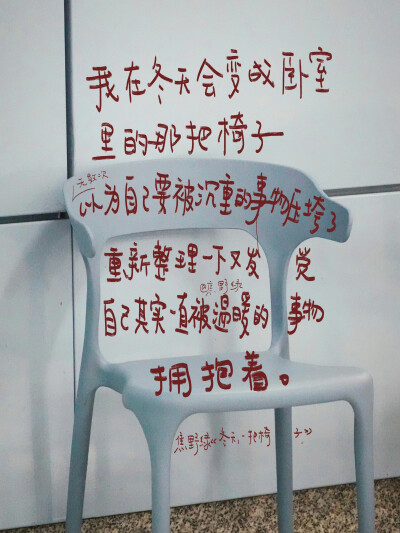 我在冬天会变成卧室
里的那把椅子
无数次
以为自己要被沉重的事物压垮了
重新整理一下又发 觉
@焦野绿
自己其实一直被温暖的 事物
拥抱着。
焦野绿《冬天,一把椅 子》